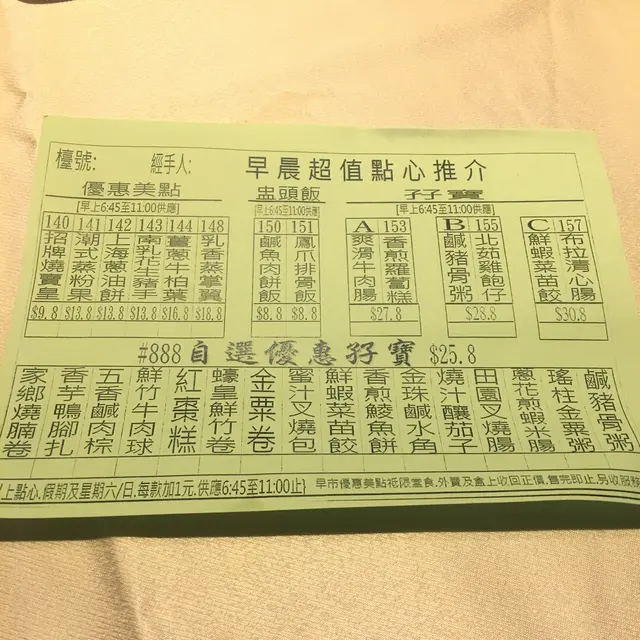 檯號: 經手人: 早晨超值點心推介
優惠美點 盅頭飯 孖寶
[早上6:45至11:00供應] [早上6:45至11:00供應] [早上6:45至11:00供應]
140 141 142 143 144 148 150 151 A 153 B 155 C 157
招牌燒賣皇
潮式蒸粉果
上海蔥油餅
南乳花生豬手
薑蔥牛柏葉
乳香蒸掌翼
鹹魚肉餅飯
鳳爪排骨飯
爽滑牛肉腸
香煎蘿蔔糕
鹹豬骨粥
北菇雞飽仔
鮮蝦菜苗餃
布拉清心腸
$9.8 $13.8 $13.8 $13.8 $16.8 $18.8 $8.8 $8.8 $27.8 $28.8 $30.8
#888自選優惠孖寶 $25.8
家鄉燒腩卷
香芋鴨腳扎
五香鹹肉棕
鮮竹牛肉球
紅棗糕
蠔皇鮮竹卷
金粟卷
蜜汁叉燒包
鮮蝦菜苗餃
香煎鯪魚餅
金珠鹹水角
燒汁釀茄子
田園叉燒腸
蔥花煎蝦米腸
瑤柱金粟粥
鹹豬骨粥
上點心.假期及星期六/日.每款加1元.供應6:45至11:00止} 早市優惠美點祗限堂食.外賣及盒上收回正價.售完即止.另收服務